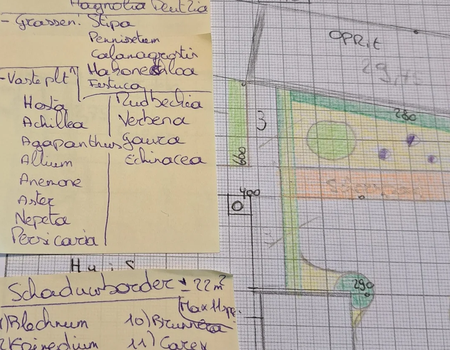 Magnolia Deutzia
- Grassen: Stipa
Pennisetum
Calamagrostis
Hakonechloa
Festuca
- Vaste plt
Hosta
Achillea
Agapanthus
Allium
Anemone
Aster
Nepeta
Persicaria
Rudbechia
Verbena
Gaura
Echinacea
Huis
Schaduwborder ± 22 m²
Max 11 spp.
1) Blechnum
2) Epimedium
10) Brunnera
11) Carex
OPRIT
29,75
280
3
600
400
290